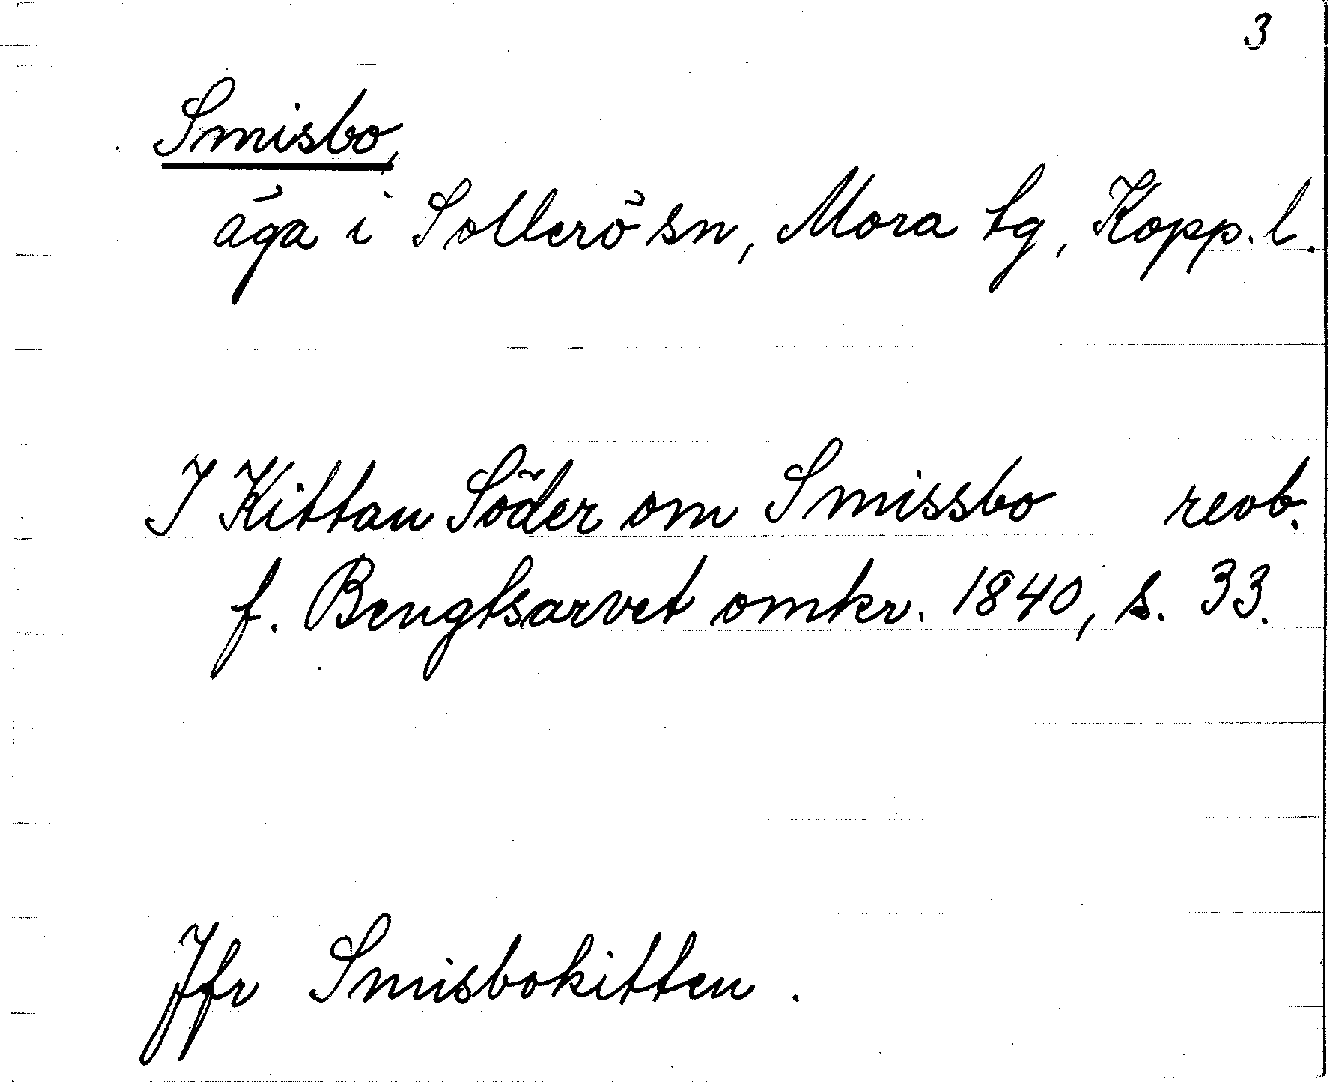 3
Smisbo,
äga i Sollerö sn, Mora tg, Kopp. l.
I Kittan Söder om Smissbo revb.
f. Bengtsarvet omkr. 1840, s. 33.
Jfr Smisbokitten.